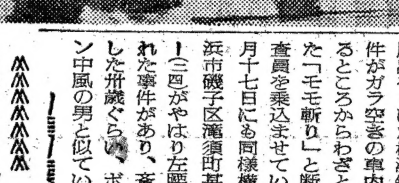 件がガラ空きの車内
るところからわざと
た「モモ斬り」と断
査員を乗込ませてい
月十七日にも同様横
浜市磯子区滝須町基
ー(三四)がやはり左腿
れた事件があり、斉
した卅歳ぐらい、ボ
ン中風の男と似てい